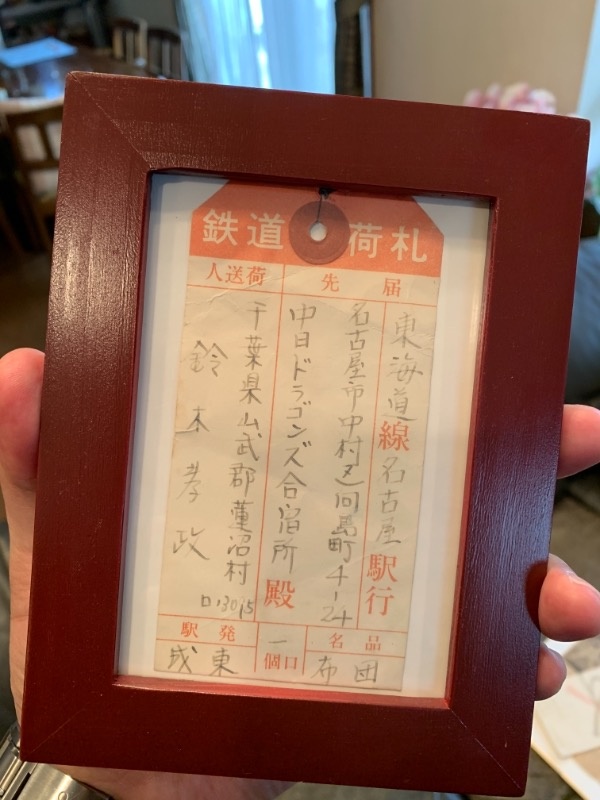 鉄道荷札
届先
東海道線名古屋駅行
名古屋市中村区向島町4-24
中日ドラゴンズ合宿所殿
荷送人
千葉県山武郡蓮沼村
鈴木孝政
品名
布団
一
個口
発駅
成東